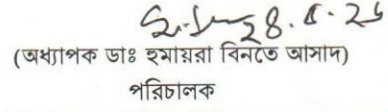 28.8.25
(অধ্যাপক ডাঃ হুমায়রা বিনতে আসাদ)
পরিচালক